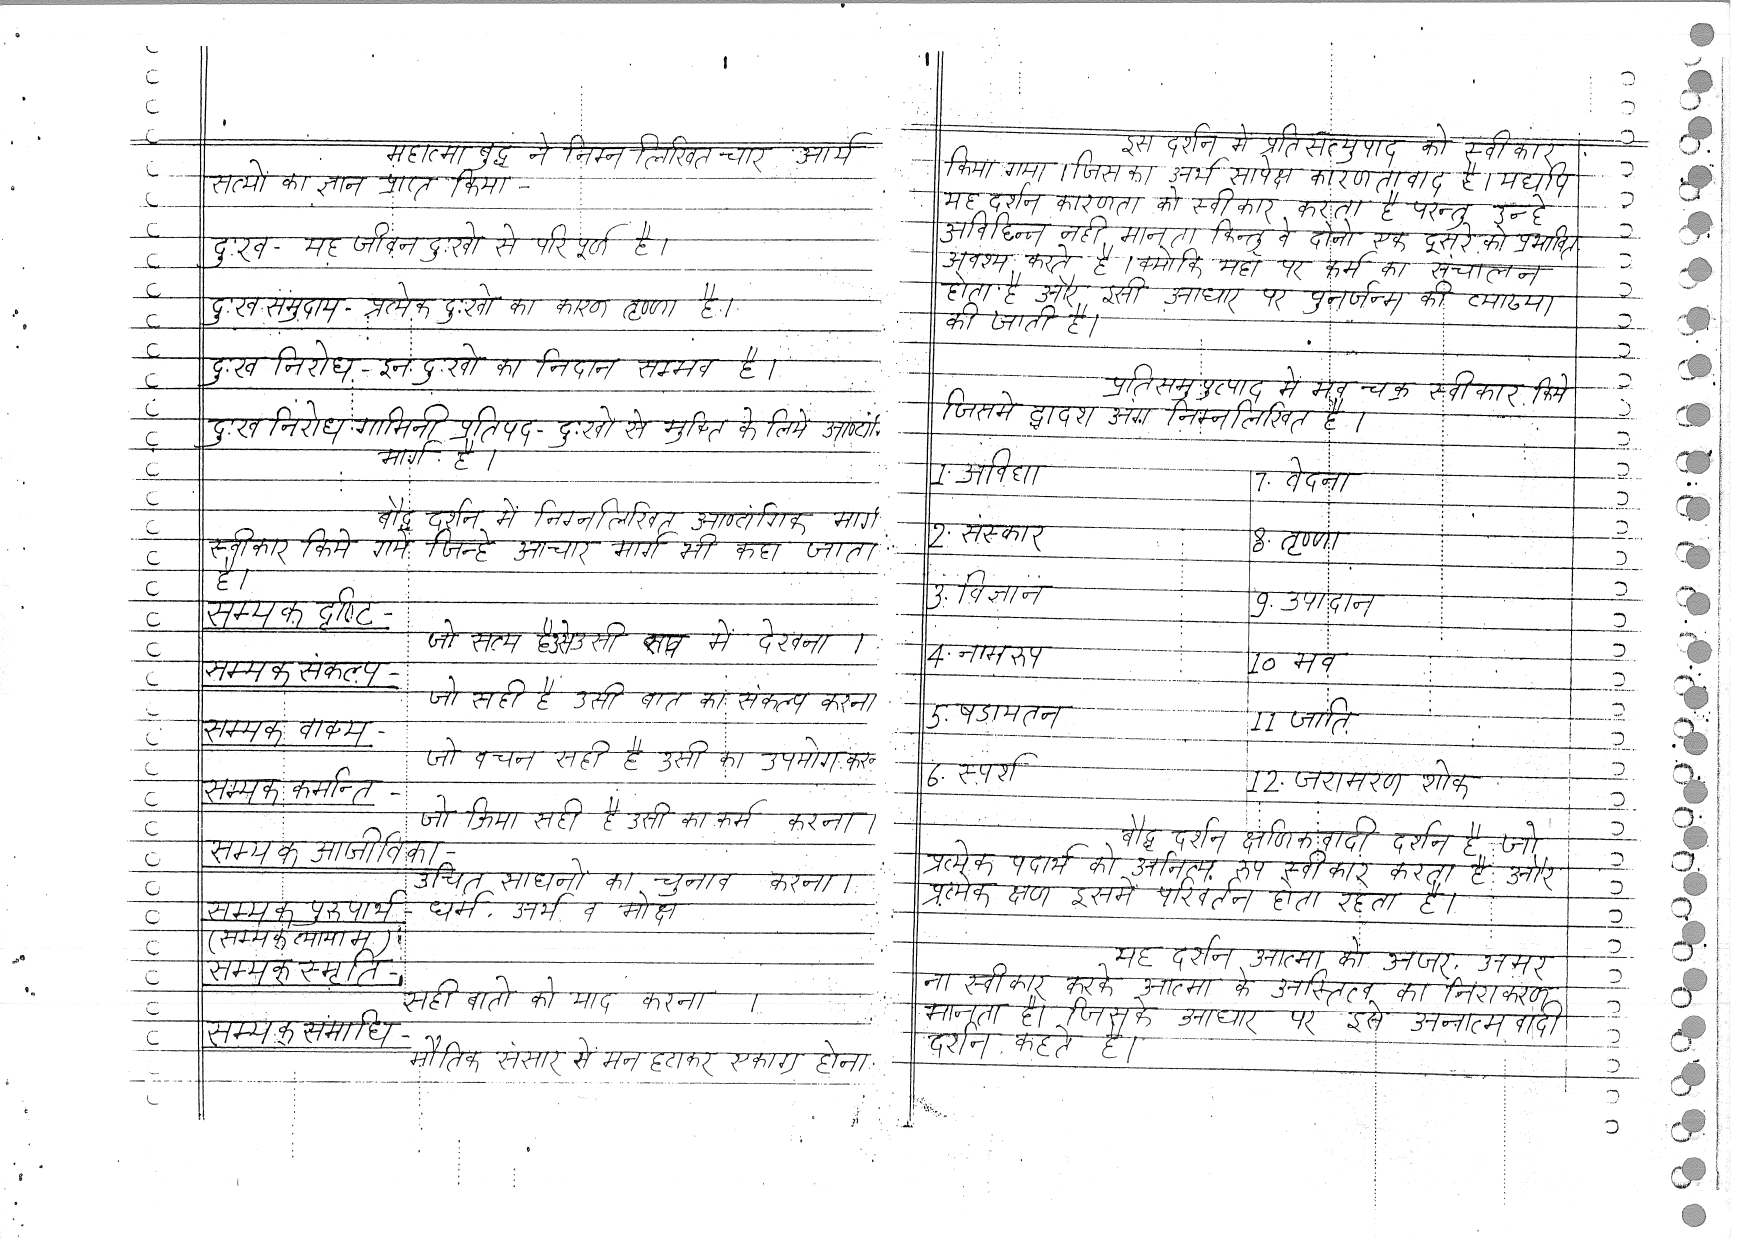 महात्मा बुद्ध ने निम्न लिखित चार आर्य
सत्यों का ज्ञान प्राप्त किया -
दुःख - यह जीवन दुःखो से परिपूर्ण है।
दुःख समुदाय - प्रत्येक दुःखो का कारण तृष्णा है।
दुःख निरोध - इन दुःखो का निदान सम्भव है।
दुःख निरोध गामिनी प्रतिपद - दुःखो से मुक्ति के लिये
मार्ग है।
बौद्ध दर्शन में निम्नलिखित आष्टांगिक मार्ग
स्वीकार किये गये जिन्हे आचार मार्ग भी कहा जाता
है।
सम्यक दृष्टि -
जो सत्य है उसे उसी में देखना ।
सम्यक संकल्प -
जो सही है उसी बात का संकल्प करना
सम्यक वाक्य -
जो वचन सही है उसी का उपभोग
सम्यक कर्मान्त -
जो क्रिया सही है उसी का कर्म करना।
सम्यक आजीविका -
उचित साधनो का चुनाव करना।
सम्यक पुरुषार्थ - धर्म. अर्थ व मोक्ष
(सम्यक व्यायाम)
सम्यक स्मृति -
सही बातो को याद करना ।
सम्यक समाधि -
भौतिक संसार से मन हटाकर एकाग्र होना
इस दर्शन में को स्वीकार
किया गया। जिसका अर्थ सापेक्ष कारणतावाद है। यद्यपि
यह दर्शन कारणता को स्वीकार करता है परन्तु उन्हे
अविछिन्न नही मानता किन्तु वे दोनो एक दूसरे को प्रभावित
अवश्य करते है। क्योकि यहाँ पर कर्म का संचालन
होता है और इसी आधार पर पुनर्जन्म की व्याख्या
की जाती है।
में भव चक्र स्वीकार किये
जिसमे द्वादश अंग निम्नलिखित है।
1. अविद्या
2. संस्कार
3. विज्ञान
4. नामरुप
5. षडायतन
6. स्पर्श
7. वेदना
8. तृष्णा
9. उपादान
10 भव
11 जाति
12. जरामरण शोक
बौद्ध दर्शन क्षणिकवादी दर्शन है जो
प्रत्येक पदार्थ को अनित्य रुप स्वीकार करता है और
प्रत्येक क्षण इसमे परिवर्तन होता रहता है।
यह दर्शन आत्मा को अजर. अमर
ना स्वीकार करके आत्मा के अस्तित्व का निराकरण
मानता है। जिसके आधार पर इसे अनात्मवादी
दर्शन कहते है।